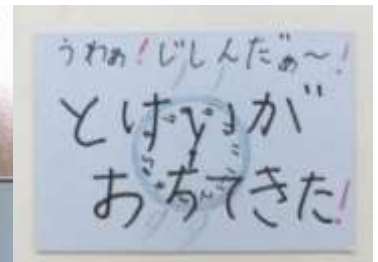 うわぁ!じしんだぁ~!
とけいが
おちてきた!